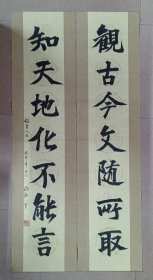 観古今文随所取
知天地化不能言